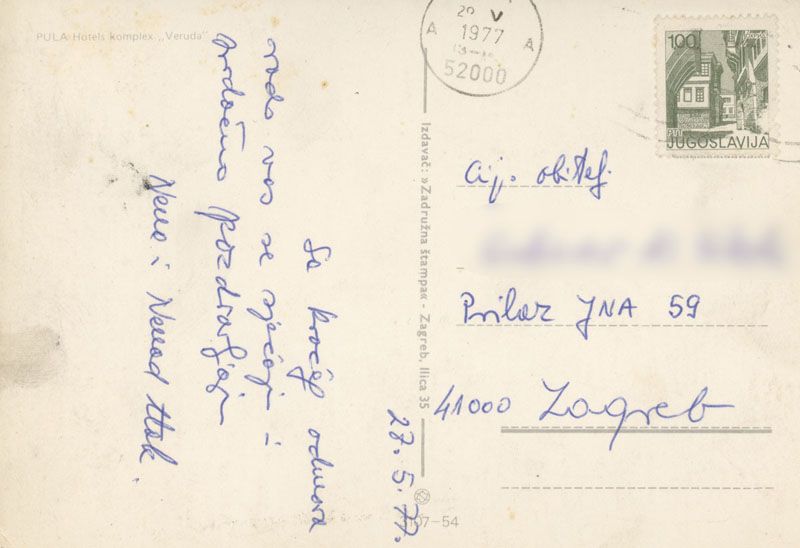 PULA Hotels komplex „Veruda"
Sa kraćeg odmora
rado vas se sjećaju i
srdačno pozdravljaju
Neno i Nenad
27. 5. 77.
Izdavač: »Zadružna štampa« - Zagreb, Ilica 35
107-54
29 V
1977
A A
52000
100
PTT
JUGOSLAVIJA
Cij. obitelj
Prilaz JNA 59
41000 Zagreb